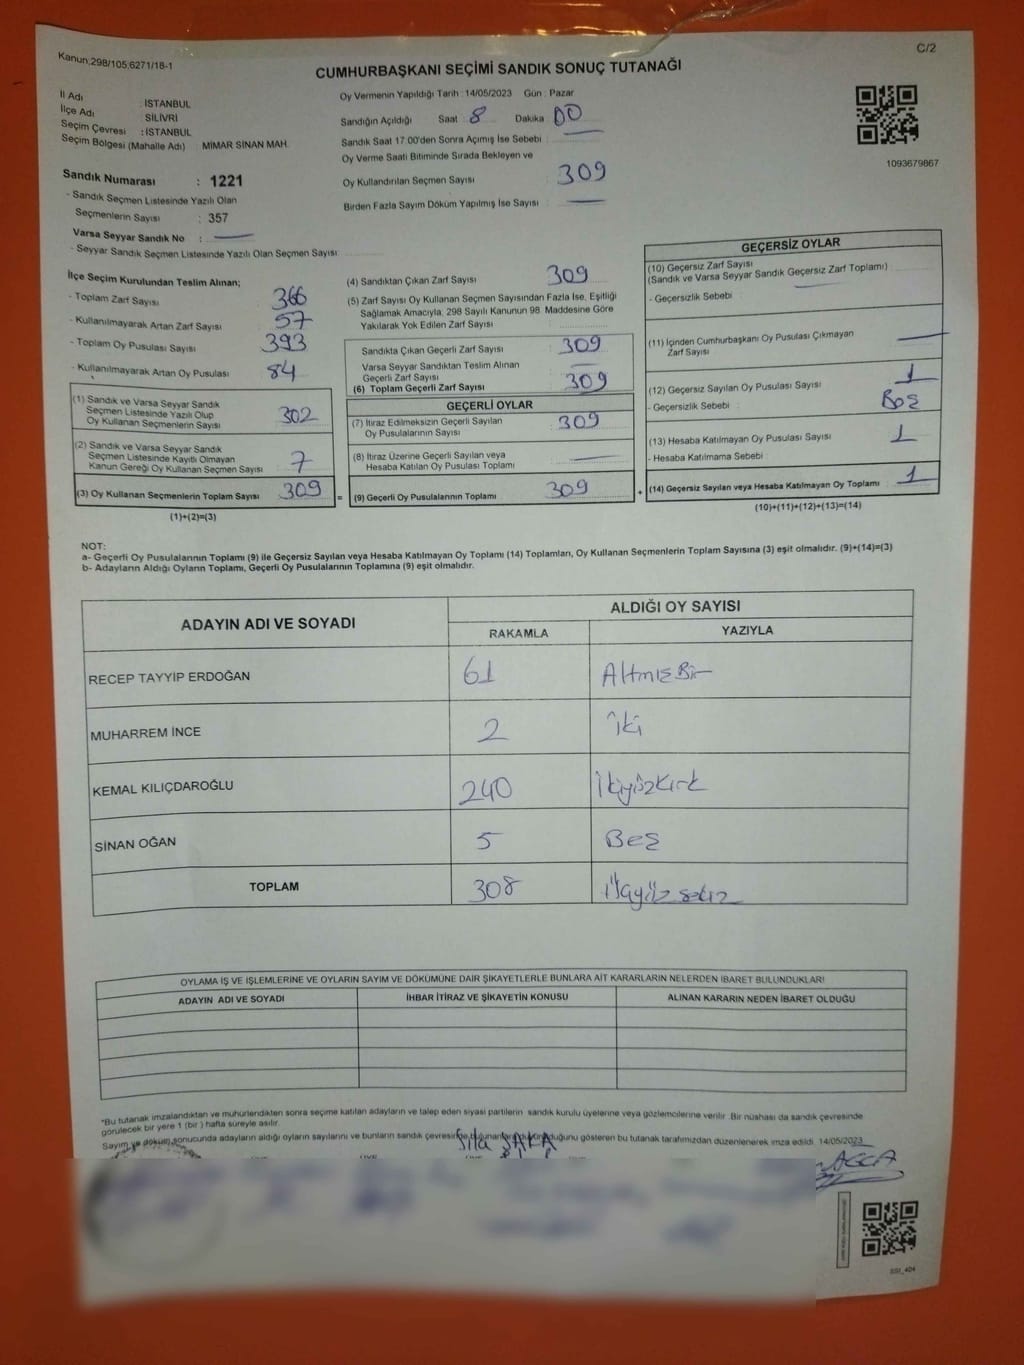 Kanun;298/105;6271/18-1
C/2
CUMHURBAŞKANI SEÇİMİ SANDIK SONUÇ TUTANAĞI
İl Adı : İSTANBUL
İlçe Adı SİLİVRİ
Seçim Çevresi : İSTANBUL
Seçim Bölgesi (Mahalle Adı) : MİMAR SİNAN MAH.
Sandık Numarası : 1221
- Sandık Seçmen Listesinde Yazılı Olan
Seçmenlerin Sayısı : 357
Varsa Seyyar Sandık No :
- Seyyar Sandık Seçmen Listesinde Yazılı Olan Seçmen Sayısı:
Oy Vermenin Yapıldığı Tarih : 14/05/2023 Gün : Pazar
Sandığın Açıldığı Saat 8 Dakika 00
Sandık Saat 17.00'den Sonra Açımış İse Sebebi :
Oy Verme Saati Bitiminde Sırada Bekleyen ve
Oy Kullandırılan Seçmen Sayısı : 309
Birden Fazla Sayım Döküm Yapılmış İse Sayısı :
1093679867
İlçe Seçim Kurulundan Teslim Alınan;
- Toplam Zarf Sayısı : 366
- Kullanılmayarak Artan Zarf Sayısı : 57
- Toplam Oy Pusulası Sayısı : 393
- Kullanılmayarak Artan Oy Pusulası : 84
(1) Sandık ve Varsa Seyyar Sandık
Seçmen Listesinde Yazılı Olup
Oy Kullanan Seçmenlerin Sayısı : 302
(2) Sandık ve Varsa Seyyar Sandık
Seçmen Listesinde Kayıtlı Olmayan
Kanun Gereği Oy Kullanan Seçmen Sayısı : 7
(3) Oy Kullanan Seçmenlerin Toplam Sayısı : 309
(1)+(2)=(3)
=
(4) Sandıktan Çıkan Zarf Sayısı : 309
(5) Zarf Sayısı Oy Kullanan Seçmen Sayısından Fazla İse, Eşitliği
Sağlamak Amacıyla; 298 Sayılı Kanunun 98. Maddesine Göre
Yakılarak Yok Edilen Zarf Sayısı :
Sandıkta Çıkan Geçerli Zarf Sayısı : 309
Varsa Seyyar Sandıktan Teslim Alınan
Geçerli Zarf Sayısı
(6) Toplam Geçerli Zarf Sayısı : 309
GEÇERLİ OYLAR
(7) İtiraz Edilmeksizin Geçerli Sayılan
Oy Pusulalarının Sayısı : 309
(8) İtiraz Üzerine Geçerli Sayılan veya
Hesaba Katılan Oy Pusulası Toplamı :
(9) Geçerli Oy Pusulalarının Toplamı : 309
+
GEÇERSİZ OYLAR
(10) Geçersiz Zarf Sayısı
(Sandık ve Varsa Seyyar Sandık Geçersiz Zarf Toplamı)
- Geçersizlik Sebebi :
(11) İçinden Cumhurbaşkanı Oy Pusulası Çıkmayan
Zarf Sayısı
(12) Geçersiz Sayılan Oy Pusulası Sayısı : 1
- Geçersizlik Sebebi : Boş
(13) Hesaba Katılmayan Oy Pusulası Sayısı : 1
- Hesaba Katılmama Sebebi :
(14) Geçersiz Sayılan veya Hesaba Katılmayan Oy Toplamı : 1
(10)+(11)+(12)+(13)=(14)
NOT:
a- Geçerli Oy Pusulalarının Toplamı (9) ile Geçersiz Sayılan veya Hesaba Katılmayan Oy Toplamı (14) Toplamları, Oy Kullanan Seçmenlerin Toplam Sayısına (3) eşit olmalıdır. (9)+(14)=(3)
b- Adayların Aldığı Oyların Toplamı, Geçerli Oy Pusulalarının Toplamına (9) eşit olmalıdır.
ADAYIN ADI VE SOYADI
ALDIĞI OY SAYISI
RAKAMLA YAZIYLA
RECEP TAYYİP ERDOĞAN 61 AltmışBir
MUHARREM İNCE 2 İki
KEMAL KILIÇDAROĞLU 240 İkiyüzkırk
SİNAN OĞAN 5 Beş
TOPLAM 308 Üçyüz sekiz
OYLAMA İŞ VE İŞLEMLERİNE VE OYLARIN SAYIM VE DÖKÜMÜNE DAİR ŞİKAYETLERLE BUNLARA AİT KARARLARIN NELERDEN İBARET BULUNDUKLARI
ADAYIN ADI VE SOYADI İHBAR İTİRAZ VE ŞİKAYETİN KONUSU ALINAN KARARIN NEDEN İBARET OLDUĞU
*Bu tutanak imzalandıktan ve mühürlendikten sonra seçime katılan adayların ve talep eden siyasi partilerin sandık kurulu üyelerine veya gözlemcilerine verilir. Bir nüshası da sandık çevresinde
görülecek bir yere 1 (bir ) hafta süreyle asılır.
Sayım ve döküm sonucunda adayların aldığı oyların sayılarını ve bunların sandık çevresinde olduğunu gösteren bu tutanak tarafımızdan düzenlenerek imza edildi. 14/05/2023
Sıla
SSI_404